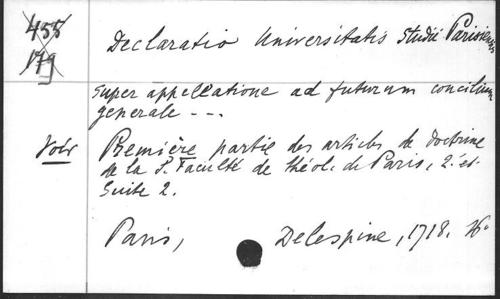 455
179
Declaratio Universitatis Studii Parisiensis
super appellatione ad futurum concilium
generale ---
Voir Première partie des articles de doctrine
de la S. Faculté de théol. de Paris, 2. et
Suite 2.
Paris, Delespine, 1718.